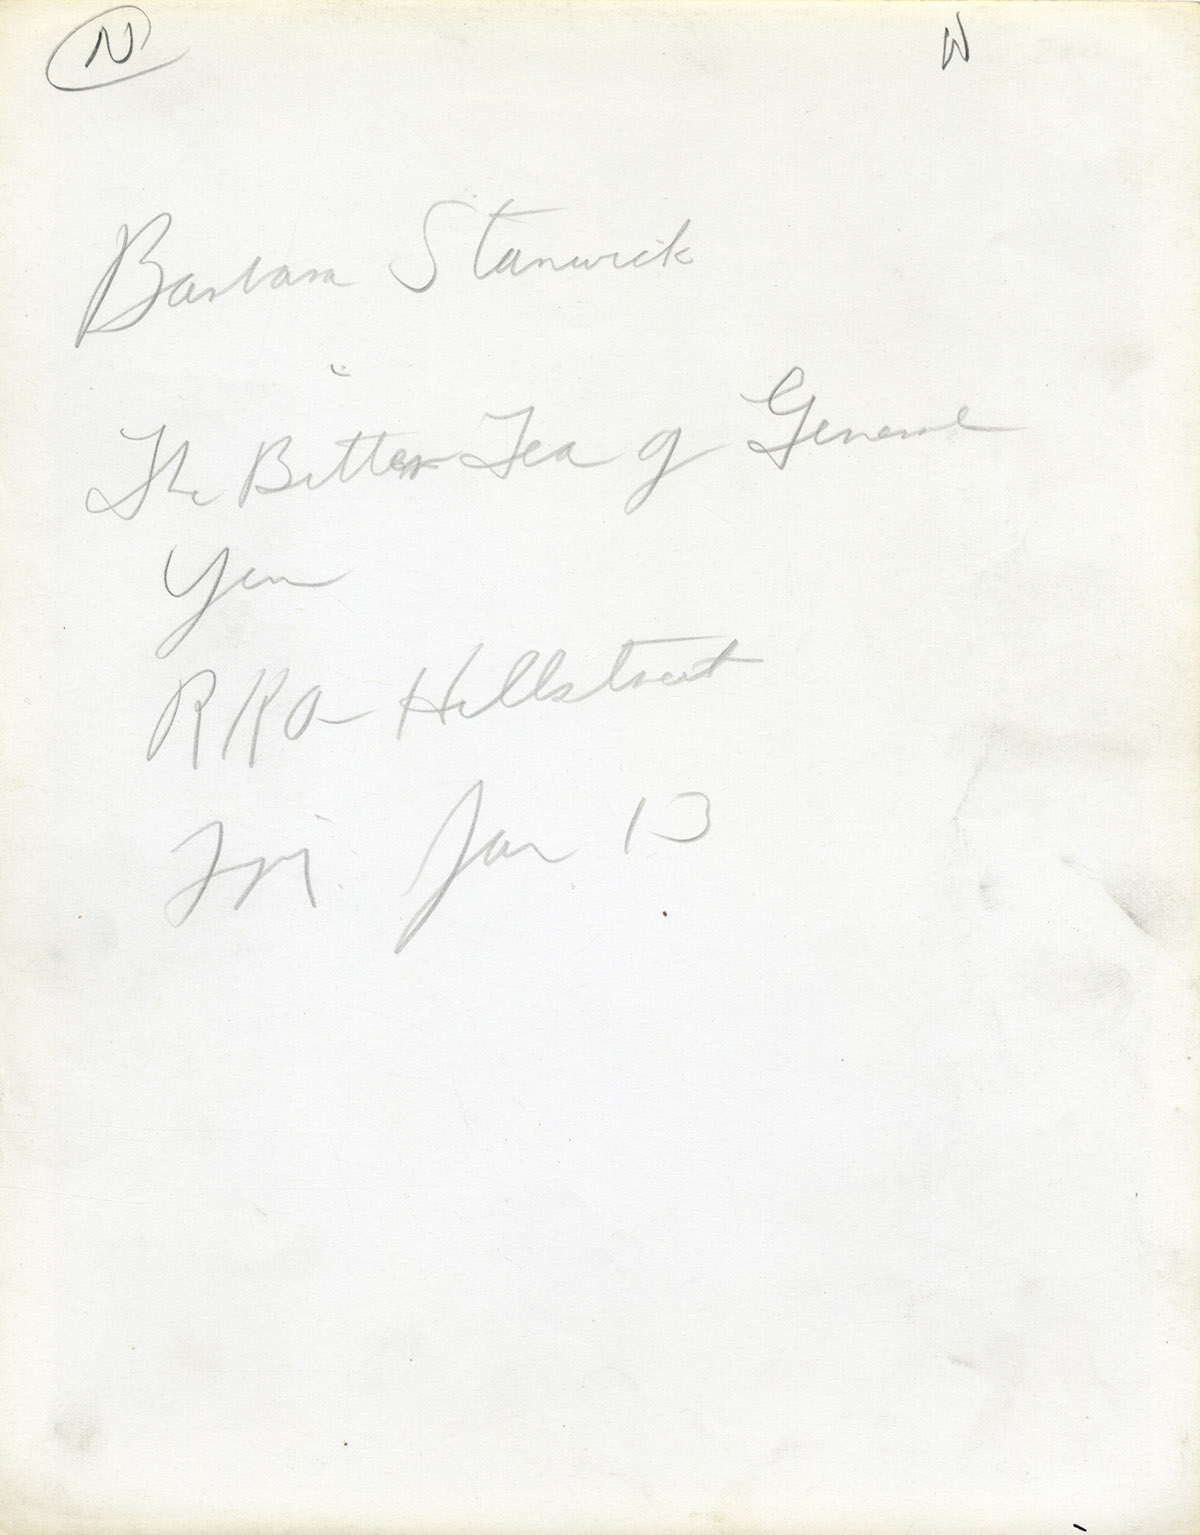 N W
Barbara Stanwick
The Bitter Tea of General
Yen
RKO - Hillstreet
Fri. Jan 13